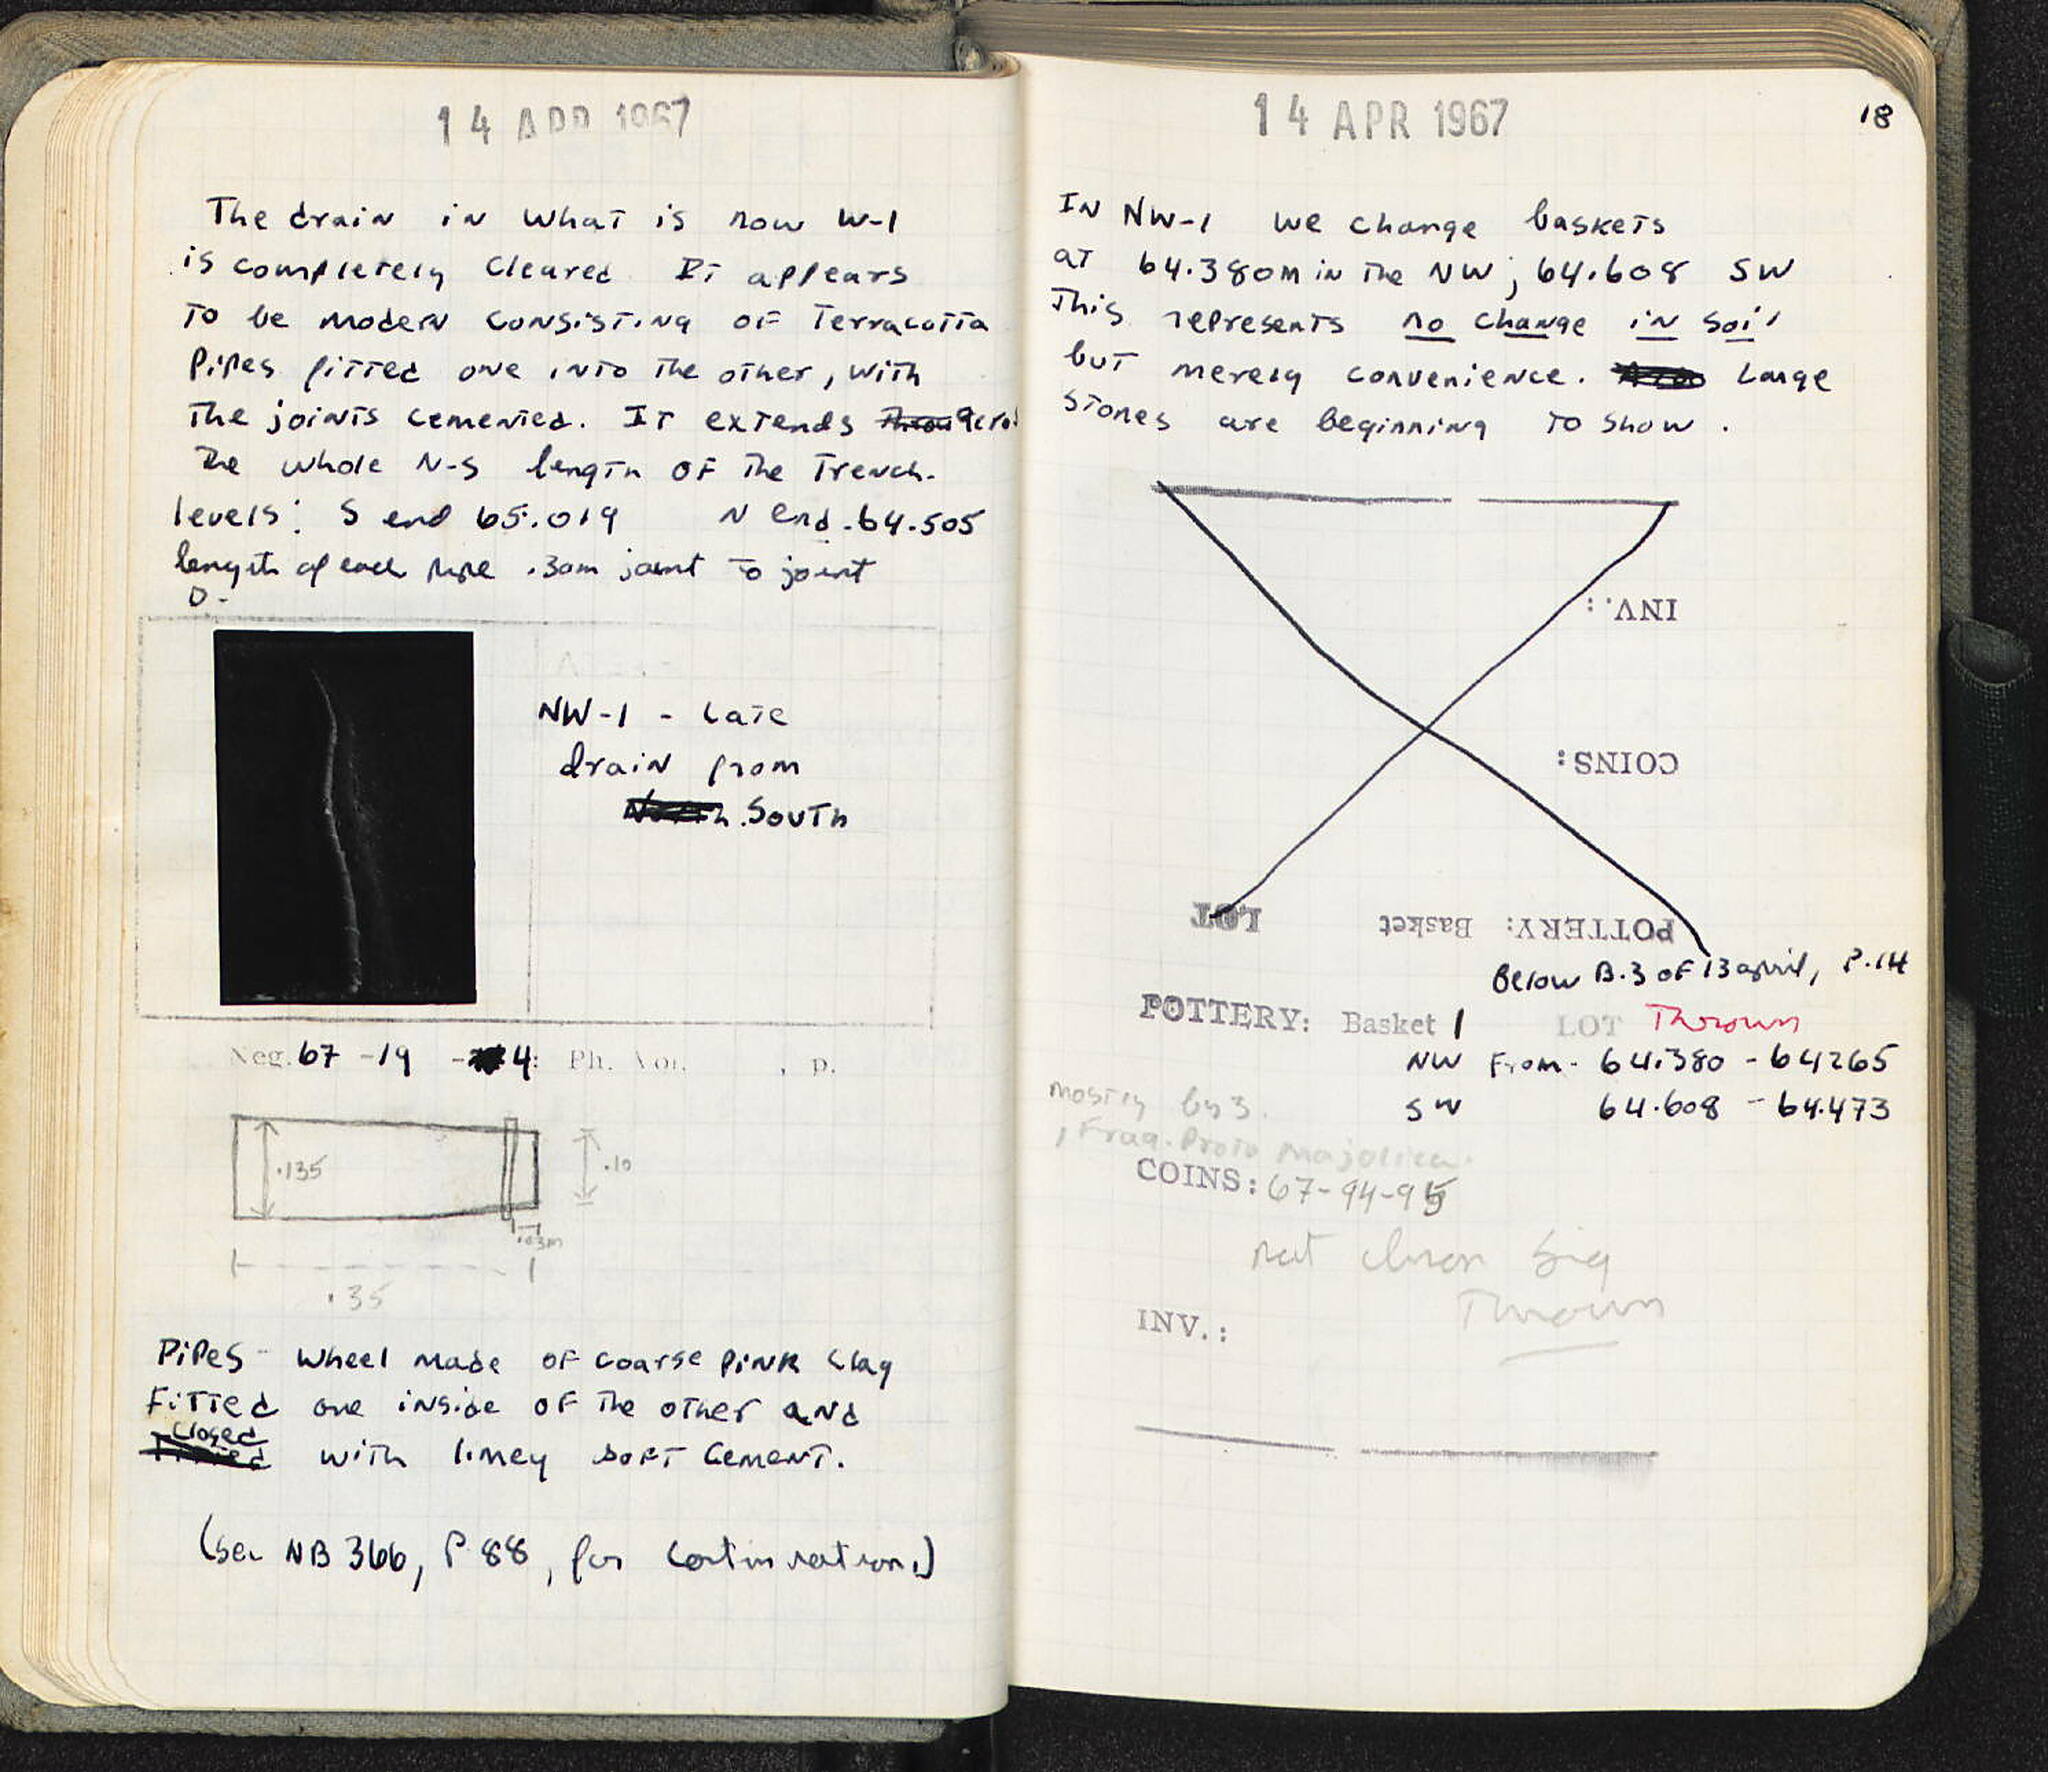 14 APR 1967
The drain in what is now W-1
is completely cleared It appears
to be modern consisting of Terracotta
Pipes fitted one into the other, with
the joints cemented. It extends acros
the whole N-S length of the Trench.
levels: S end 65.019 N end .64.505
length of each pipe .30m joint to joint
NW-1 - Late
drain from
South
Neg. 67 -19 - 4: Ph. Vol. , p.
.135
.10
.03m
.35
Pipes - wheel made of coarse pink clay
Fitted one inside of the other and
closed
with limey soft cement.
(see NB 366, P 88, for continuation.)
14 APR 1967
18
In NW-1 we change baskets
at 64.380m in the NW; 64.608 SW
This represents no change in soil
but merely convenience. Large
stones are beginning to show.
INV.:
COINS:
POTTERY: Basket LOT
Below B.3 of 13 april, P.14
POTTERY: Basket 1 LOT Thrown
NW From - 64.380 - 64265
mostly byz.
SW 64.608 - 64.473
1 Frag. Proto majolica.
COINS: 67-94-95
not chron sig
Thrown
INV.: